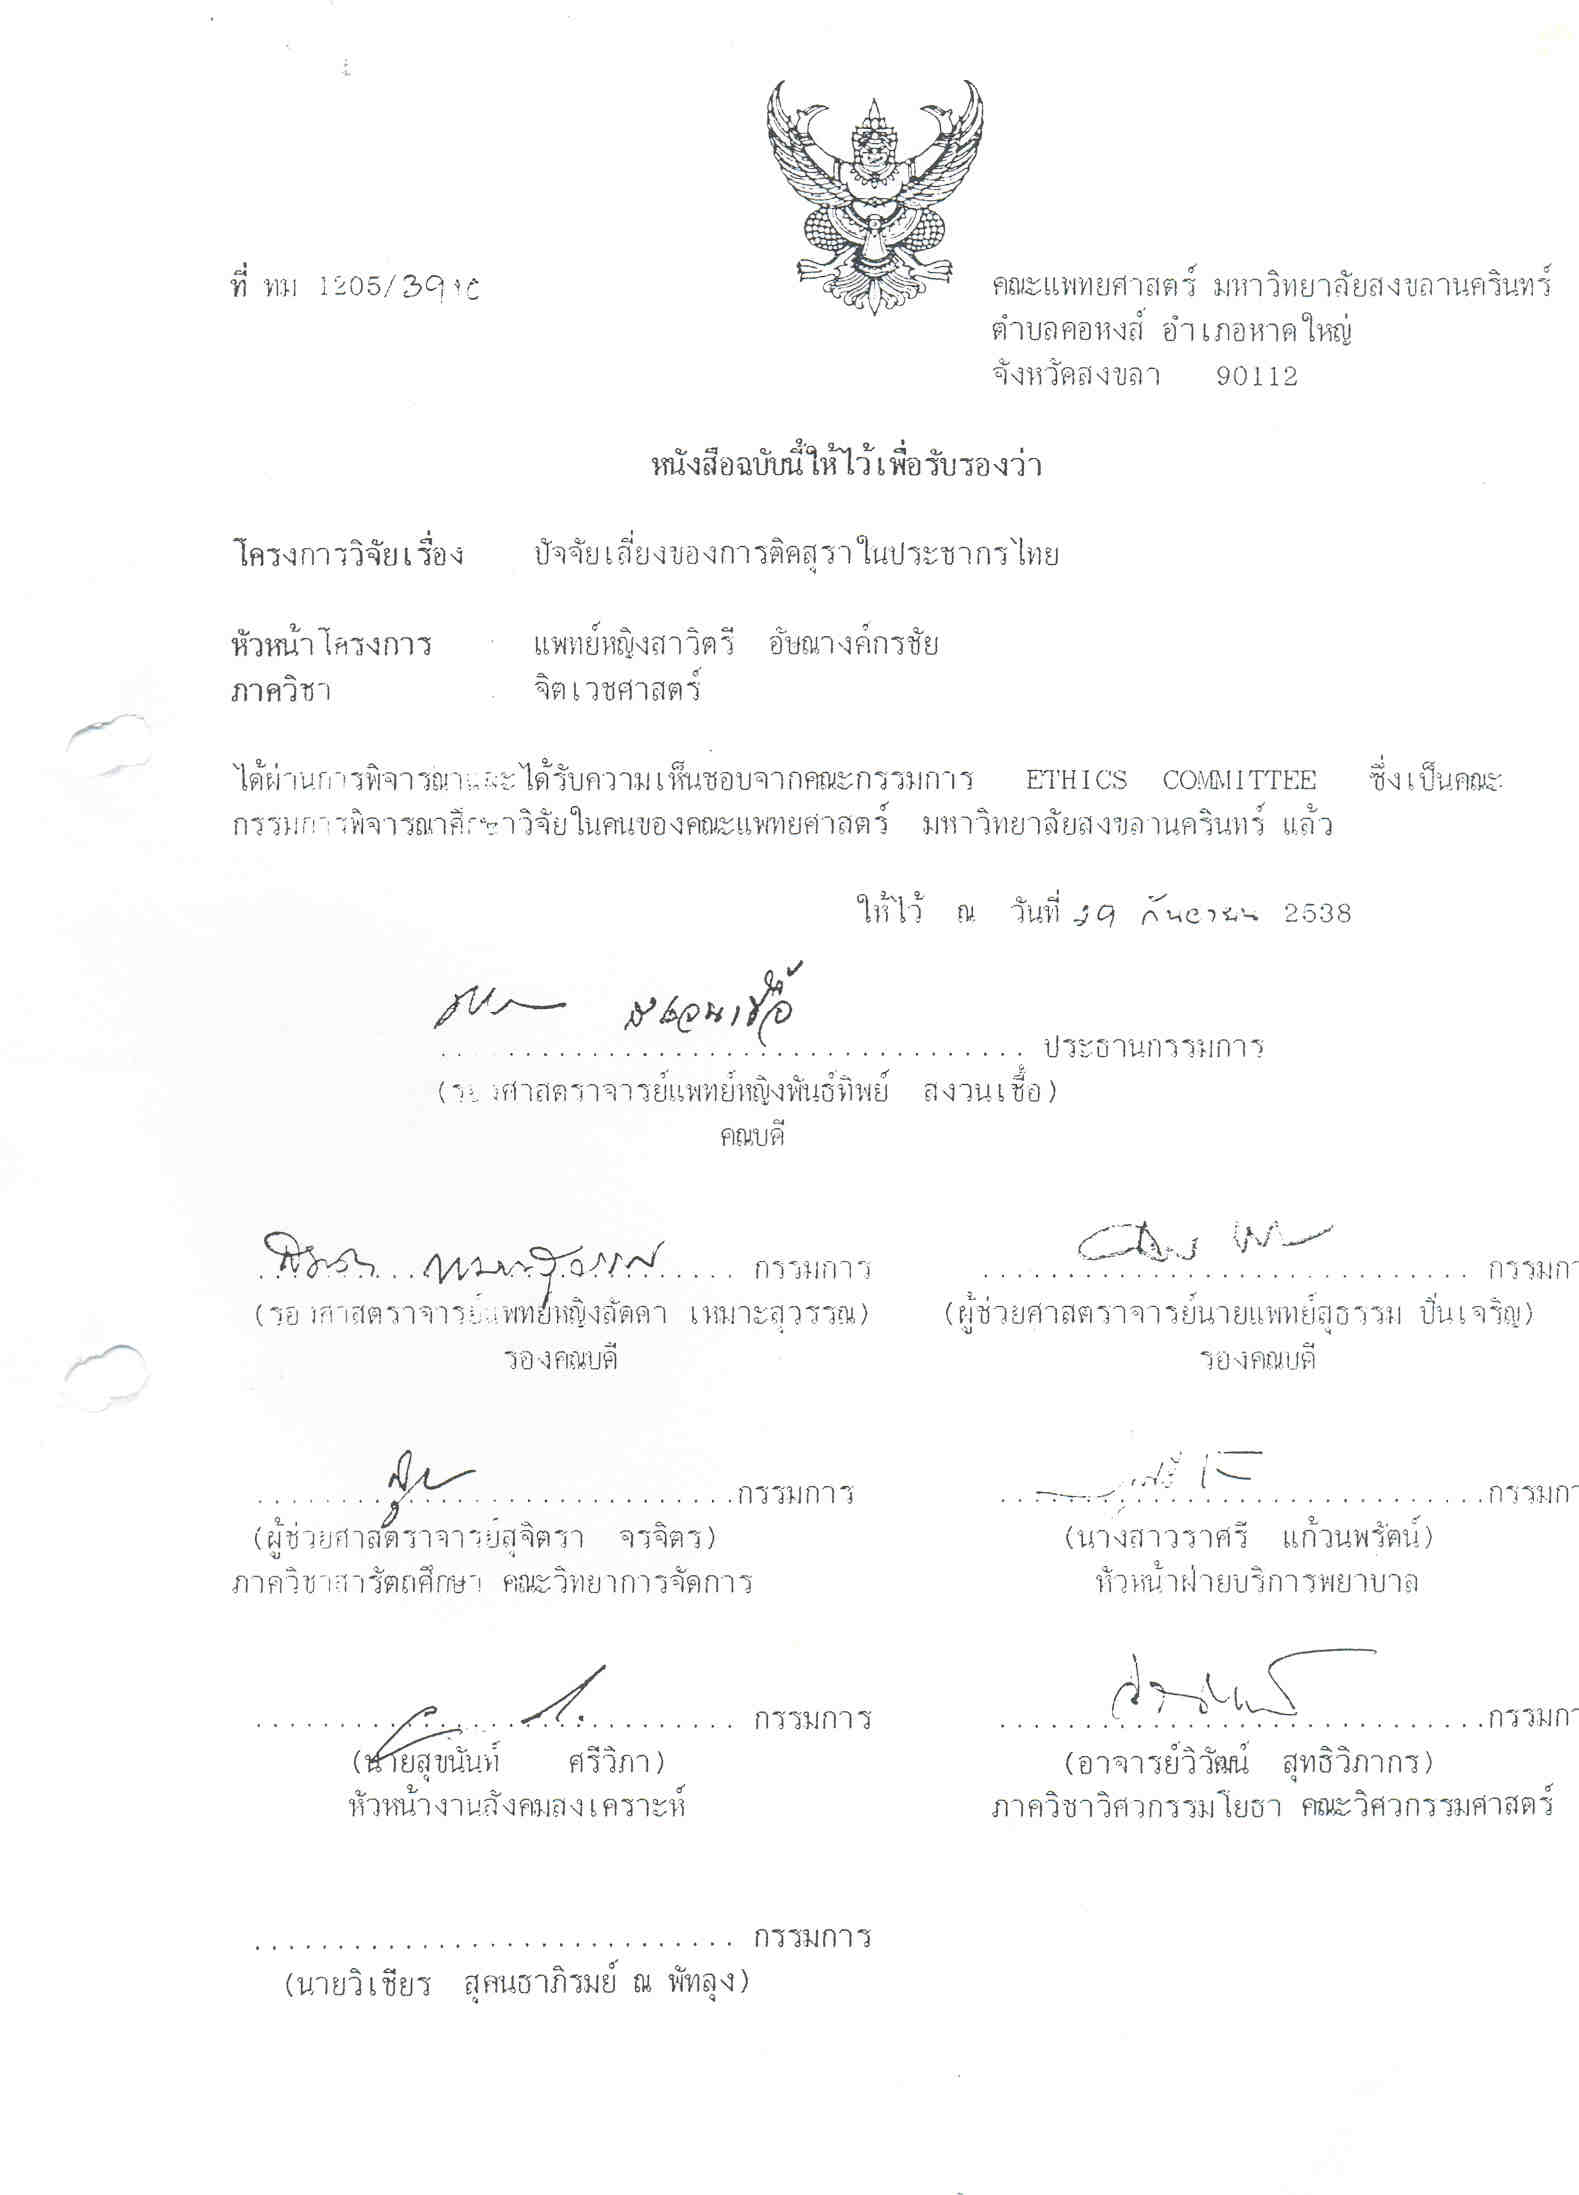 ที่ ทม 1205/39
คณะแพทยศาสตร์ มหาวิทยาลัยสงขลานครินทร์
ตำบลคอหงส์ อำเภอหาดใหญ่
จังหวัดสงขลา 90112
หนังสือฉบับนี้ให้ไว้เพื่อรับรองว่า
โครงการวิจัยเรื่อง ปัจจัยเสี่ยงของการติดสุราในประชากรไทย
หัวหน้าโครงการ แพทย์หญิงสาวิตรี อัษณางค์กรชัย
ภาควิชา จิตเวชศาสตร์
ได้ผ่านการพิจารณาและได้รับความเห็นชอบจากคณะกรรมการ ETHICS COMMITTEE ซึ่งเป็นคณะ
กรรมการพิจารณาศึกษาวิจัยในคนของคณะแพทยศาสตร์ มหาวิทยาลัยสงขลานครินทร์ แล้ว
ให้ไว้ ณ วันที่ 29 กันยายน 2538
สงวนเชื้อ
................................... ประธานกรรมการ
(รองศาสตราจารย์แพทย์หญิงพันธ์ทิพย์ สงวนเชื้อ)
คณบดี
............................. กรรมการ ............................. กรรมกา
(รองศาสตราจารย์แพทย์หญิงลัดดา เหมาะสุวรรณ) (ผู้ช่วยศาสตราจารย์นายแพทย์สุธรรม ปิ่นเจริญ)
รองคณบดี รองคณบดี
.............................กรรมการ .............................กรรมกา
(ผู้ช่วยศาสตราจารย์สุจิตรา จรจิตร) (นางสาวราศรี แก้วนพรัตน์)
ภาควิชาสารัตถศึกษา คณะวิทยาการจัดการ หัวหน้าฝ่ายบริการพยาบาล
............................. กรรมการ .............................กรรมกา
(นายสุขนันท์ ศรีวิภา) (อาจารย์วิวัฒน์ สุทธิวิภากร)
หัวหน้างานสังคมสงเคราะห์ ภาควิชาวิศวกรรมโยธา คณะวิศวกรรมศาสตร์
............................. กรรมการ
(นายวิเชียร สุคนธาภิรมย์ ณ พัทลุง)